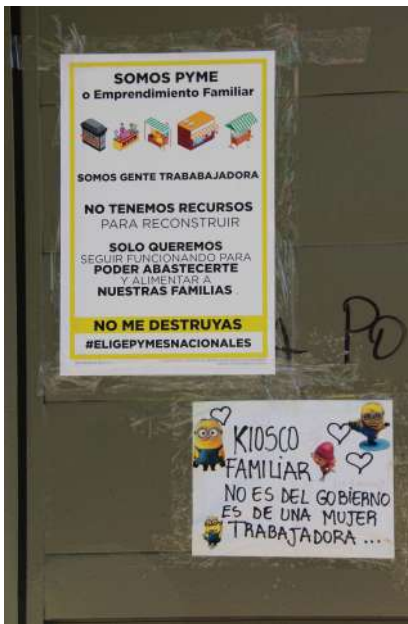 SOMOS PYME
o Emprendimiento Familiar
SOMOS GENTE TRABABAJADORA
NO TENEMOS RECURSOS
PARA RECONSTRUIR
SOLO QUEREMOS
SEGUIR FUNCIONANDO PARA
PODER ABASTECERTE
Y ALIMENTAR A
NUESTRAS FAMILIAS
NO ME DESTRUYAS
#ELIGEPYMESNACIONALES
KIOSCO
FAMILIAR
NO ES DEL GOBIERNO
ES DE UNA MUJER
TRABAJADORA...